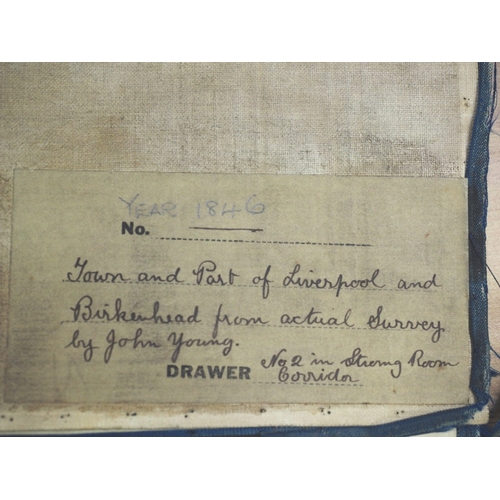 YEAR 1846
No.
Town and Part of Liverpool and
Birkenhead from actual Survey
by John Young.
DRAWER No 2 in Strong Room
Corridor